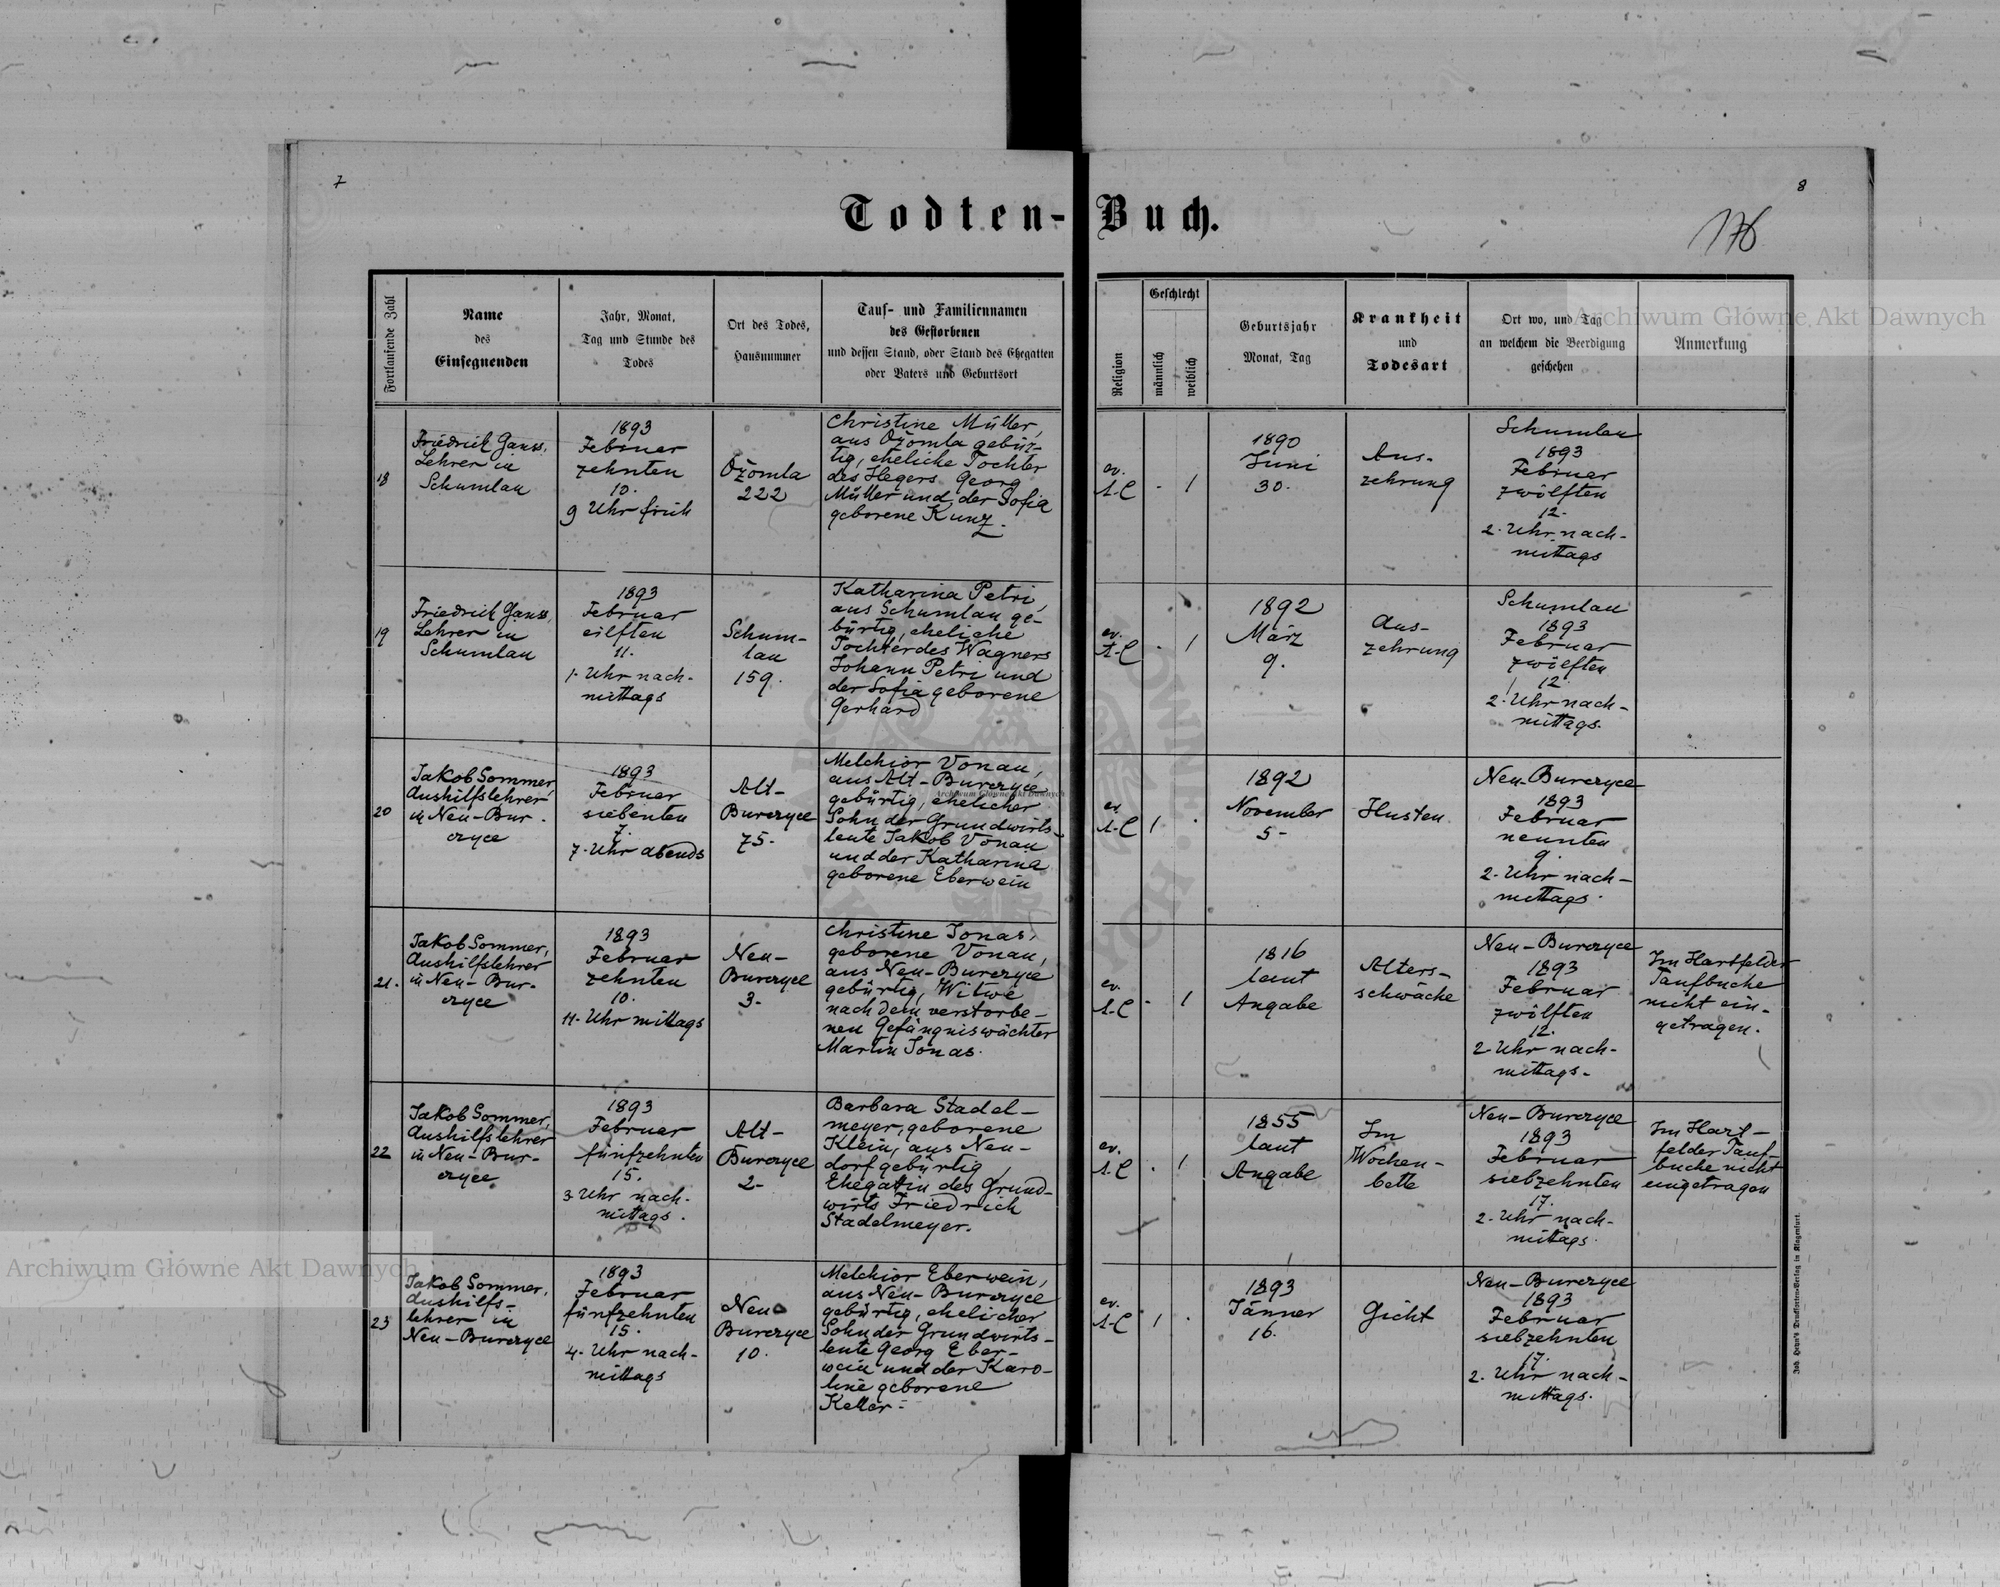 7
8
Todten-Buch.
176
Fortlaufende Zahl
Name
des
Einsegnenden
Jahr, Monat,
Tag und Stunde des
Todes
Ort des Todes,
Hausnummer
Tauf- und Familiennamen
des Gestorbenen
und dessen Stand, oder Stand des Ehegatten
oder Vaters und Geburtsort
Religion
Geschlecht
männlich
weiblich
Geburtsjahr
Monat, Tag
Krankheit
und
Todesart
Ort wo, und Tag
an welchem die Beerdigung
geschehen
Anmerkung
18
Friedrich Gauss,
Lehrer in
Schumlau
1893
Februar
zehnten
10.
9 Uhr früh
Ożomla
222
Christine Müller,
aus Ożomla gebür-
tig, eheliche Tochter
des Hegers Georg
Müller und der Sofia
geborene Kunz.
ev.
A.C
-
1
1890
Juni
30.
Aus-
zehrung
Schumlau
1893
Februar
zwölften
12.
2. Uhr nach-
mittags
19
Friedrich Gauss,
Lehrer in
Schumlau
1893
Februar
eilften
11.
1. Uhr nach-
mittags
Schum-
lau
159.
Katharina Petri,
aus Schumlau ge-
bürtig, eheliche
Tochter des Wagners
Johann Petri und
der Sofia geborene
Gerhard
ev.
A.C
-
1
1892
März
9.
Aus-
zehrung
Schumlau
1893
Februar
zwölften
12
2. Uhr nach-
mittags.
20
Jakob Sommer,
Aushilfslehrer
in Neu-Bur-
czyce
1893
Februar
siebenten
7.
7. Uhr abends
Alt-
Burczyce
75.
Melchior Vonau,
aus Alt-Burczyce
gebürtig, ehelicher
Sohn der Grundwirts-
leute Jakob Vonau
und der Katharina
geborene Eberwein
ev
A.C
1
.
1892
November
5.
Husten
Neu-Burczyce
1893
Februar
neunten
9.
2. Uhr nach-
mittags.
21.
Jakob Sommer,
Aushilfslehrer
in Neu-Bur-
czyce
1893
Februar
zehnten
10.
11. Uhr mittags
Neu-
Burczyce
3.
Christine Jonas,
geborene Vonau,
aus Neu-Burczyce
gebürtig, Witwe
nach dem verstorbe-
nen Gefängniswächter
Martin Jonas.
ev.
A.C
-
1
1816
laut
Angabe
Alters-
schwäche
Neu-Burczyce
1893
Februar
zwölften
12.
2. Uhr nach-
mittags.
Im Hartfelder
Taufbuche
nicht ein-
getragen.
22
Jakob Sommer,
Aushilfslehrer
in Neu-Bur-
czyce
1893
Februar
fünfzehnten
15.
3. Uhr nach-
mittags.
Alt-
Burczyce
2.
Barbara Stadel-
meyer, geborene
Klein, aus Neu-
dorf gebürtig,
Ehegatin des Grund-
wirts Friedrich
Stadelmeyer.
ev.
A.C
.
1
1855
laut
Angabe
Im
Wochen-
bette
Neu-Burczyce
1893
Februar
siebzehnten
17.
2. Uhr nach-
mittags.
Im Hart-
felder Tauf-
buche nicht
eingetragen
23
Jakob Sommer,
Aushilfs-
lehrer in
Neu-Burczyce
1893
Februar
fünfzehnten
15.
4. Uhr nach-
mittags
Neu
Burczyce
10.
Melchior Eberwein,
aus Neu-Burczyce
gebürtig, ehelicher
Sohn der Grundwirts-
leute Georg Eber-
wein und der Karo-
line geborene
Keller.
ev.
A.C
1
.
1893
Jänner
16.
Gicht
Neu-Burczyce
1893
Februar
siebzehnten
17.
2. Uhr nach-
mittags.
Joh. Heyn's Drucksorten-Verlag in Klagenfurt.
Archiwum Główne Akt Dawnych
Archiwum Główne Akt Dawnych
Archiwum Główne Akt Dawnych